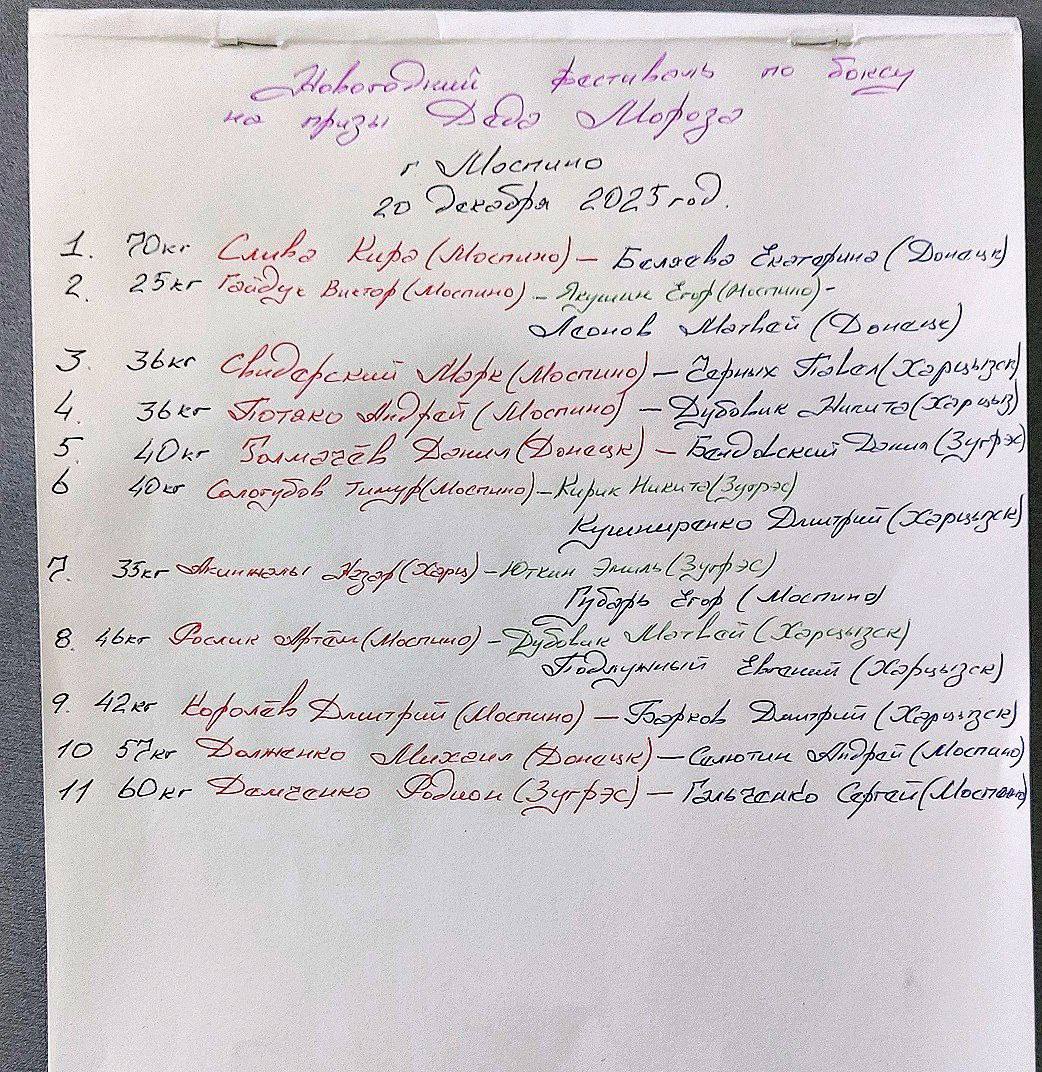 Новогодний фестиваль по боксу
на призы Деда Мороза
г Моспино
20 декабря 2025 год.
1. 70кг Слива Кира (Моспино) – Беляева Екатерина (Донецк)
2. 25кг Гайдук Виктор (Моспино) – Якушин Егор (Моспино) –
Леонов Матвей (Донецк)
3. 36кг Свидерский Марк (Моспино) – Черных Павел (Харцызск)
4. 36кг Потако Андрей (Моспино) – Дубовик Никита (Харцыз)
5. 40кг Толмачёв Данил (Донецк) – Бендовский Данил (Зугрэс)
6 40кг Сологубов Тимур (Моспино) – Кирик Никита (Зугрэс)
Кушниренко Дмитрий (Харцызск)
7. 35кг Назар (Харц) – Юткин Эмиль (Зугрэс)
Губарь Егор (Моспино)
8. 46кг Рослик Артём (Моспино) – Дубовик Матвей (Харцызск)
Подлужный Евгений (Харцызск)
9. 42кг Королёв Дмитрий (Моспино) – Барков Дмитрий (Харцызск)
10 57кг Долженко Михаил (Донецк) – Салютин Андрей (Моспино)
11 60кг Демченко Родион (Зугрэс) – Гальченко Сергей (Моспино)